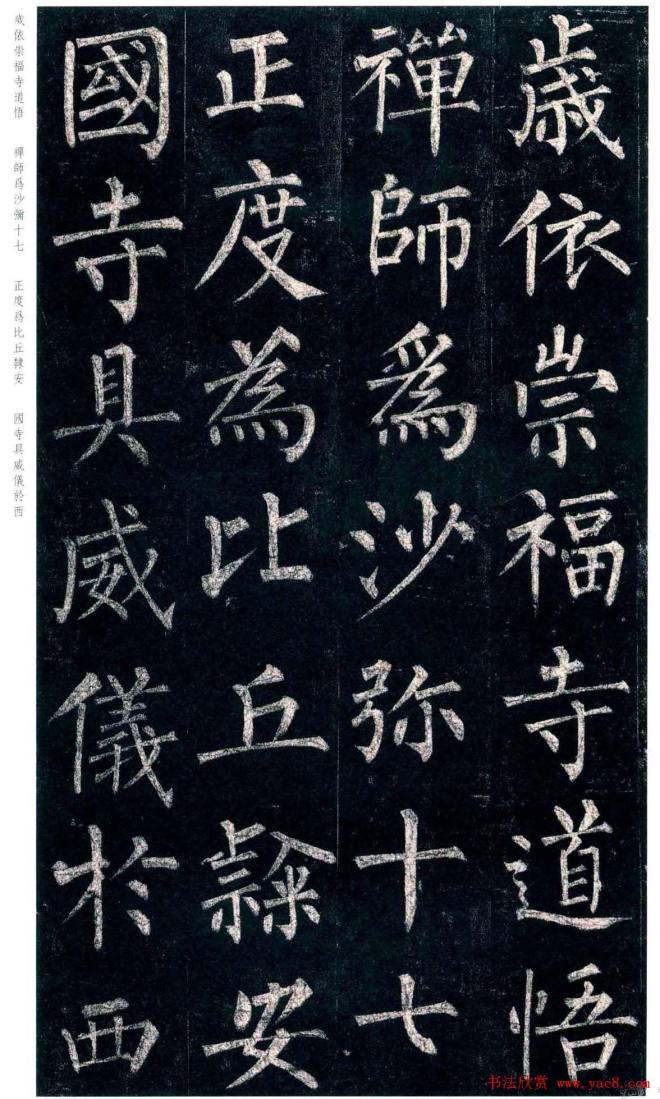 歲依崇福寺道悟
禪師爲沙弥十七
正度為比丘隸安
國寺具威儀於西
歲依崇福寺道悟 禪師爲沙彌十七 正度爲比丘隸安 國寺具威儀於西
书法欣赏 www.yac8.com